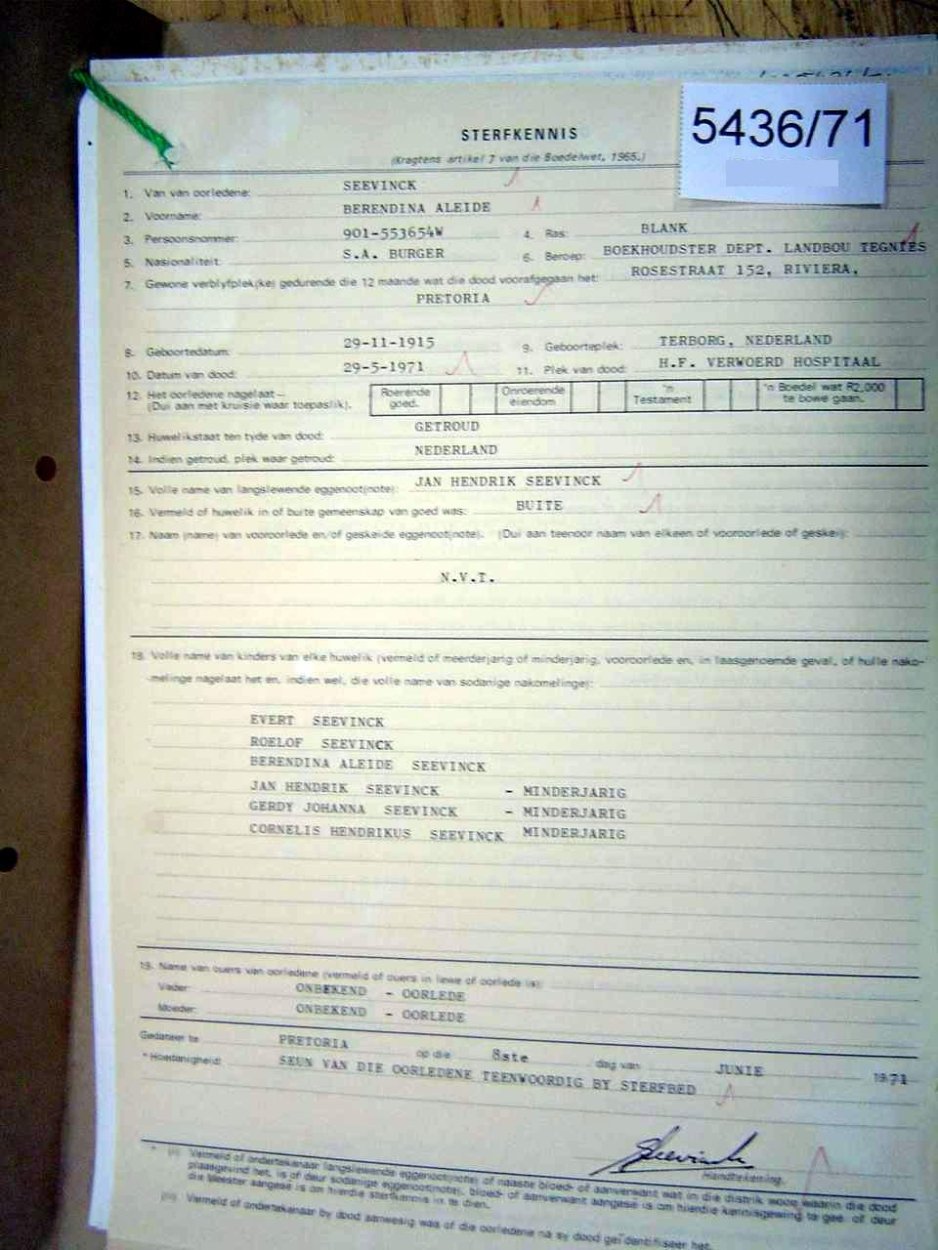 5436/71
STERFKENNIS
(Kragtens artikel 7 van die Boedelwet, 1965.)
1. Van van oorledene: SEEVINCK
2. Voorname: BERENDINA ALEIDE
3. Persoonsnommer: 901-553654W 4. Ras: BLANK
5. Nasionaliteit: S.A. BURGER 6. Beroep: BOEKHOUDSTER DEPT. LANDBOU TEGNIES
7. Gewone verblyfplek(ke) gedurende die 12 maande wat die dood voorafgegaan het: ROSESTRAAT 152, RIVIERA,
PRETORIA
8. Geboortedatum: 29-11-1915 9. Geboorteplek: TERBORG, NEDERLAND
10. Datum van dood: 29-5-1971 11. Plek van dood: H.F. VERWOERD HOSPITAAL
12. Het oorledene nagelaat— Roerende Onroerende 'n 'n Boedel wat R2,000
(Dui aan met kruisie waar toepaslik). goed. eiendom Testament te bowe gaan.
13. Huwelikstaat ten tyde van dood: GETROUD
14. Indien getroud, plek waar getroud: NEDERLAND
15. Volle name van langslewende eggenoot(note): JAN HENDRIK SEEVINCK
16. Vermeld of huwelik in of buite gemeenskap van goed was: BUITE
17. Naam (name) van vooroorlede en/of geskeide eggenoot(note). (Dui aan teenoor naam van elkeen of vooroorlede of geskei):
N.V.T.
18. Volle name van kinders van elke huwelik (vermeld of meerderjarig of minderjarig, vooroorlede en, in laasgenoemde geval, of hulle nako-
melinge nagelaat het en, indien wel, die volle name van sodanige nakomelinge):
EVERT SEEVINCK
ROELOF SEEVINCK
BERENDINA ALEIDE SEEVINCK
JAN HENDRIK SEEVINCK - MINDERJARIG
GERDY JOHANNA SEEVINCK - MINDERJARIG
CORNELIS HENDRIKUS SEEVINCK MINDERJARIG
19. Name van ouers van oorledene (vermeld of ouers in lewe of oorlede is):
Vader: ONBEKEND - OORLEDE
Moeder: ONBEKEND - OORLEDE
Gedateer te PRETORIA op die 8ste dag van JUNIE 1971
* Hoedanigheid: SEUN VAN DIE OORLEDENE TEENWOORDIG BY STERFBED
Seevinck
Handtekening.
* (i) Vermeld of ondertekenaar langslewende eggenoot(note) of naaste bloed- of aanverwant wat in die distrik woon waarin die dood
plaasgevind het, is of deur sodanige eggenoot(note), bloed- of aanverwant aangesê is om hierdie kennisgewing te gee, of deur
die Meester aangesê is om hierdie sterfkennis in te dien.
(ii) Vermeld of ondertekenaar by dood aanwesig was of die oorledene na sy dood geïdentifiseer het.